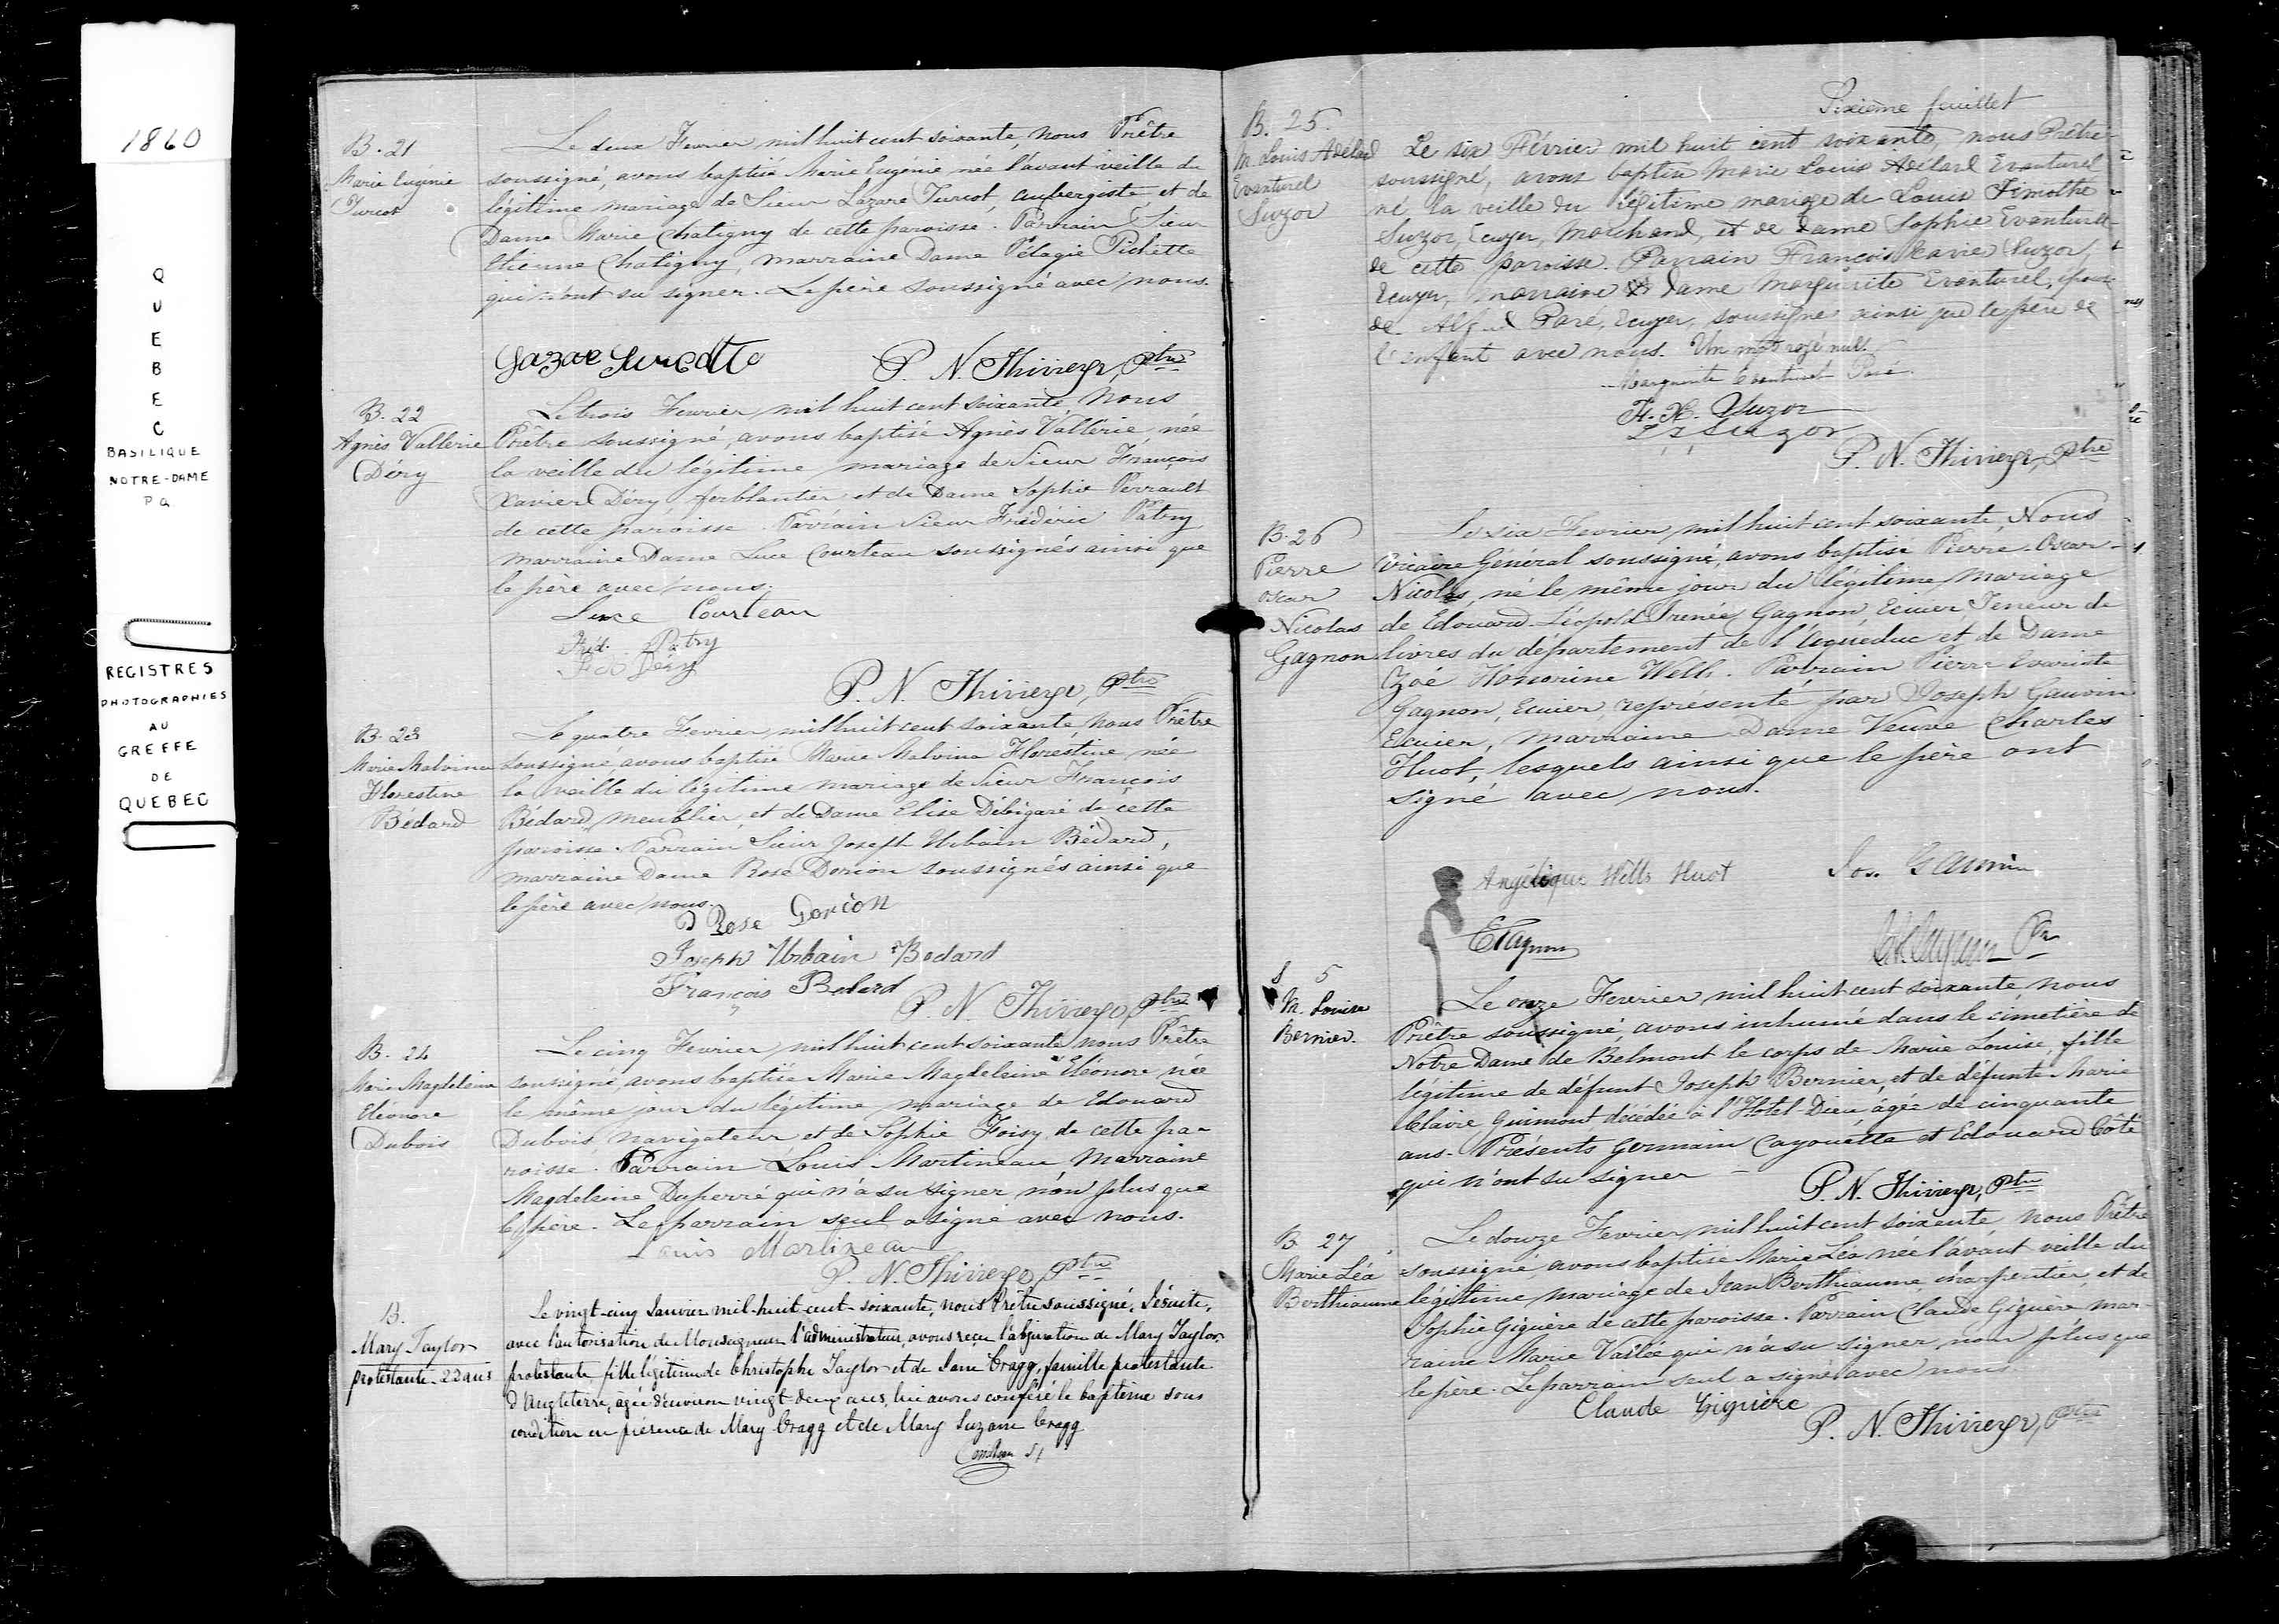 1860
Q
U
E
B
E
C
BASILIQUE
NOTRE-DAME
P Q
REGISTRES
PHOTOGRAPHIES
AU
GREFFE
DE
QUEBEC
B. 21
Marie Eugénie
Turcot
Le deux Fevrier mil huit cent soixante, nous Prêtre
soussigné, avons baptisé Marie Eugénie née l'avant veille du
légitime mariage de Sieur Lazare Turcot, aubergiste, et de
Dame Marie Chatigny de cette paroisse. Parrain Sieur
Etienne Chatigny, marraine Dame Pélagie Pichette
qui n'ont su signer. Le père soussigné avec nous.
Lazare Turcotte
P. N. Thivierge, Ptre
B. 22
Agnès Vallerie
Déry
Le trois Fevrier mil huit cent soixante, Nous
Prêtre soussigné, avons baptisé Agnès Vallérie, née
la veille du légitime mariage de Sieur François
Xavier Déry, ferblantier et de Dame Sophie Perrault
de cette paroisse. Parrain Sieur Frédéric Patry
marraine Dame Luce Courteau soussignés ainsi que
le père avec nous.
Luce Courteau
Fréd. Patry
F X Déry
P. N. Thivierge, Ptre
B. 23
Marie Malvina
Florestine
Bédard
Le quatre Fevrier, mil huit cent soixante, nous Prêtre
soussigné avons baptisé Marie Malvina Florestine, née
la veille du légitime mariage de Sieur François
Bédard, meublier, et de Dame Elise Débigaré de cette
paroisse. Parrain Sieur Joseph Urbain Bédard,
marraine Dame Rose Dorion soussignés ainsi que
le père avec nous.
Rose Dorion
Joseph Urbain Bedard
François Bedard
P. N. Thivierge, Ptre
B. 24
Marie Magdeleine
Eléonore
Dubois
Le cinq Fevrier mil huit cent soixante, nous Prêtre
soussigné, avons baptisé Marie Magdeleine Eléonore, née
le même jour du légitime mariage de Edouard
Dubois, navigateur et de Sophie Foisy, de cette pa-
roisse. Parrain Louis Martineau, Marraine
Magdeleine Duperré qui n'a su signer non plus que
le père. Le parrain seul a signé avec nous.
Louis Martineau
P. N. Thivierge, Ptre
B.
Mary Taylor
protestante 22 ans
Le vingt-cinq Janvier mil-huit-cent-soixante, nous Prêtre soussigné, Jésuite,
avec l'autorisation de Monseigneur l'administrateur, avons reçu l'abjuration de Mary Taylor
protestante fille légitime de Christophe Taylor et de Jane Cragg, famille protestante
d'Angleterre, âgée d'environ vingt-deux ans, lui avons conféré le baptême sous
condition en présence de Mary Cragg et de Mary Suzan Cragg
SJ
Sixième feuillet
B. 25.
M. Louis Adélard
Evanturel
Suzor
Le six Février mil huit cent soixante, nous Prêtre
soussigné, avons baptisé Marie Louis Adélard Evanturel
né la veille du légitime mariage de Louis Timothe
Suzor, Ecuyer, Marchand, et de dame Sophie Evanturel
de cette paroisse. Parrain François Xavier Suzor,
Ecuyer, marraine dame Marguérite Evanturel, épouse
de Alfred Paré, Ecuyer, soussigné ainsi que le père de
l'enfant avec nous. Un mot rayé nul.
Marguerite Evanturel Paré
F. X. Suzor
L T Suzor
P. N. Thivierge, Ptre
B. 26
Pierre
Oscar
Nicolas
Gagnon
Le six Fevrier, mil huit cent soixante, Nous
Vicaire Général soussigné, avons baptisé Pierre-Oscar-
Nicolas, né le même jour du légitime mariage
de Edouard-Léopold Irenée Gagnon, Ecuier Teneur de
livres du département de l'aqueduc et de Dame
Zoé Honorine Wells. Parrain Pierre Evariste
Gagnon, Ecuier, représenté par Joseph Gauvin
Ecuier, marraine Dame Veuve Charles
Huot, lesquels ainsi que le père ont
signé avec nous.
Angélique Wells Huot
Jos. Gauvin
S 5
M. Louise
Bernier.
Le onze Fevrier mil huit cent soixante, nous
Prêtre soussigné, avons inhumé dans le cimetière de
Notre Dame de Belmont le corps de Marie Louise, fille
légitime de défunt Joseph Bernier, et de défunte Marie
Claire Guimont décédée à l'Hotel-Dieu âgée de cinquante
ans. Présents Germain Cayouette et Edouard Côté
qui n'ont su signer
P. N. Thivierge, Ptre
B. 27
Marie Léa
Berthiaume
Le douze Fevrier mil huit cent soixante, nous Prêtre
soussigné, avons baptisé Marie Léa née l'avant veille du
légitime mariage de Jean Berthiaume, charpentier, et de
Sophie Giguère de cette paroisse. Parrain Claude Giguère, mar-
raine Marie Vallée qui n'a su signer non plus que
le père. Le parrain seul a signé avec nous.
Claude Giguère
P. N. Thivierge, Ptre